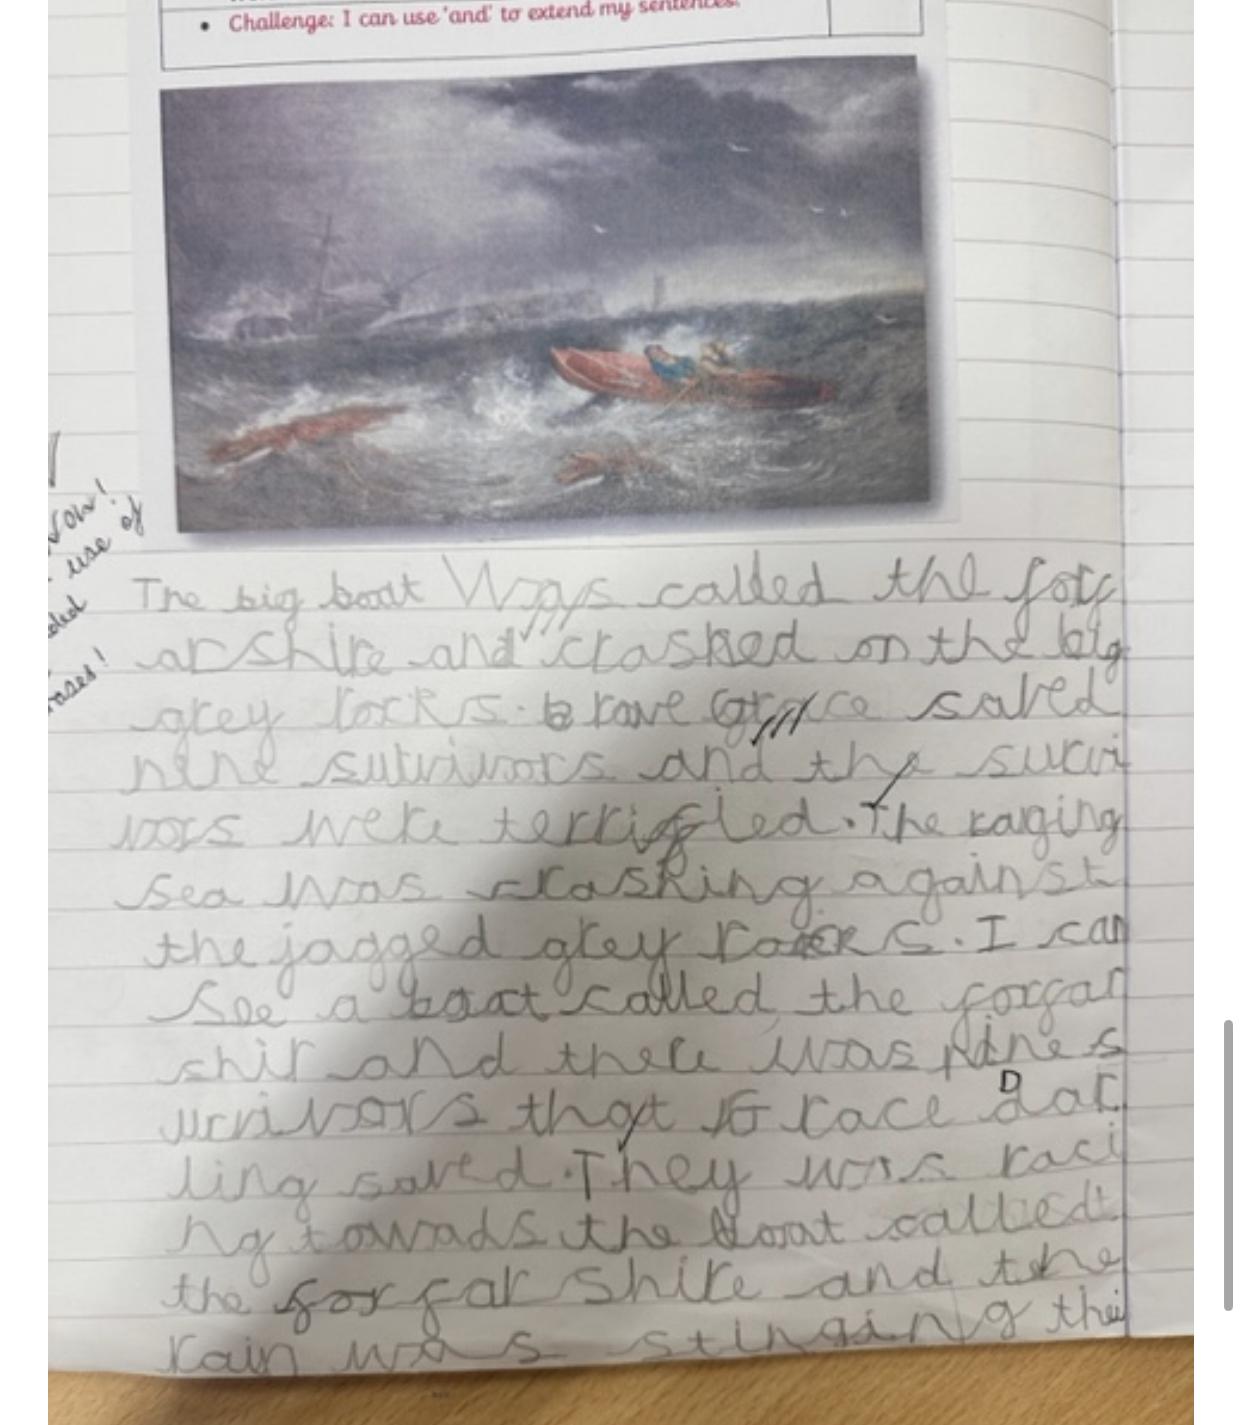 • Challenge: I can use 'and' to extend my sentences.
use of
The big boat was called the forf
arshire and crashed on the big
grey rocks. brave Grace saved
nine survivors and the survi
vors were terrified. The raging
sea was crashing against
the jagged grey rocks. I can
see a boat called the forfar
shir and there was nine s
urvivors that Grace Dar
ling saved. They was raci
ng towads the boat called
the forfar shire and the
rain was stinging thei